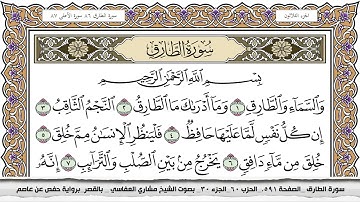 الجزء الثلاثون
سورة الطارق ٨٦ سورة الأعلى ٨٧
سُورَةُ الطَّارِقِ
بِسْمِ اللَّهِ الرَّحْمَٰنِ الرَّحِيمِ
وَالسَّمَاءِ وَالطَّارِقِ ١ وَمَا أَدْرَىٰكَ مَا الطَّارِقُ ٢ النَّجْمُ الثَّاقِبُ ٣
إِن كُلُّ نَفْسٍ لَّمَّا عَلَيْهَا حَافِظٌ ٤ فَلْيَنظُرِ الْإِنسَٰنُ مِمَّ خُلِقَ ٥
خُلِقَ مِن مَّاءٍ دَافِقٍ ٦ يَخْرُجُ مِن بَيْنِ الصُّلْبِ وَالتَّرَائِبِ ٧ إِنَّهُ
سورة الطارق الصفحة ٥٩١ الحزب ٦٠ الجزء ٣٠ بصوت الشيخ مشاري العفاسي بالقصر برواية حفص عن عاصم